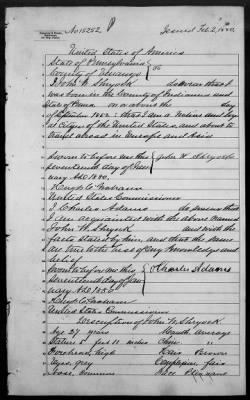 No 15252 Issued Feb. 2, 1880.
United States of America
State of Pennsylvania
County of Venango } SS
I John W. Shryock do swear that I
was born in the County of Indiana and
State of Penna on or about the day
of September 1852; that I am a Native and loyal
Citizen of the United States, and about to
travel abroad in Europe and Asia
Sworn to before me this } John W. Shryock
seventeenth day of Jan
uary A.D. 1880.
United States Commissioner
I Charles Adams do swear that
I am acquainted with the above named
John W. Shryock and with the
facts stated by him, and that the same
are true to the best of my knowledge and
belief
Sworn to before me this } Charles Adams
seventeenth day of Jan
uary A.D. 1880
United States Commissioner
Description of John W. Shryock
Age 27 years Mouth average
Stature 5 feet 11 inches Chin "
Forehead, high Hair Brown
Eyes, grey Complexion fair
Nose, common Face